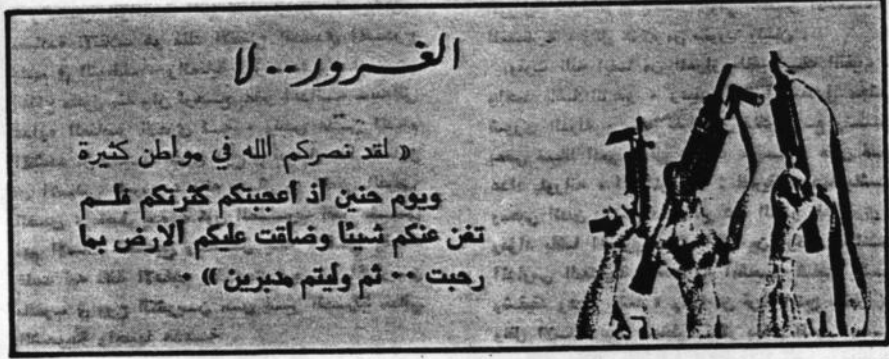 الغرور.. لا
« لقد نصركم الله في مواطن كثيرة
ويوم حنين اذ اعجبتكم كثرتكم فلم
تغن عنكم شيئا وضاقت عليكم الارض بما
رحبت .. ثم وليتم مدبرين » .